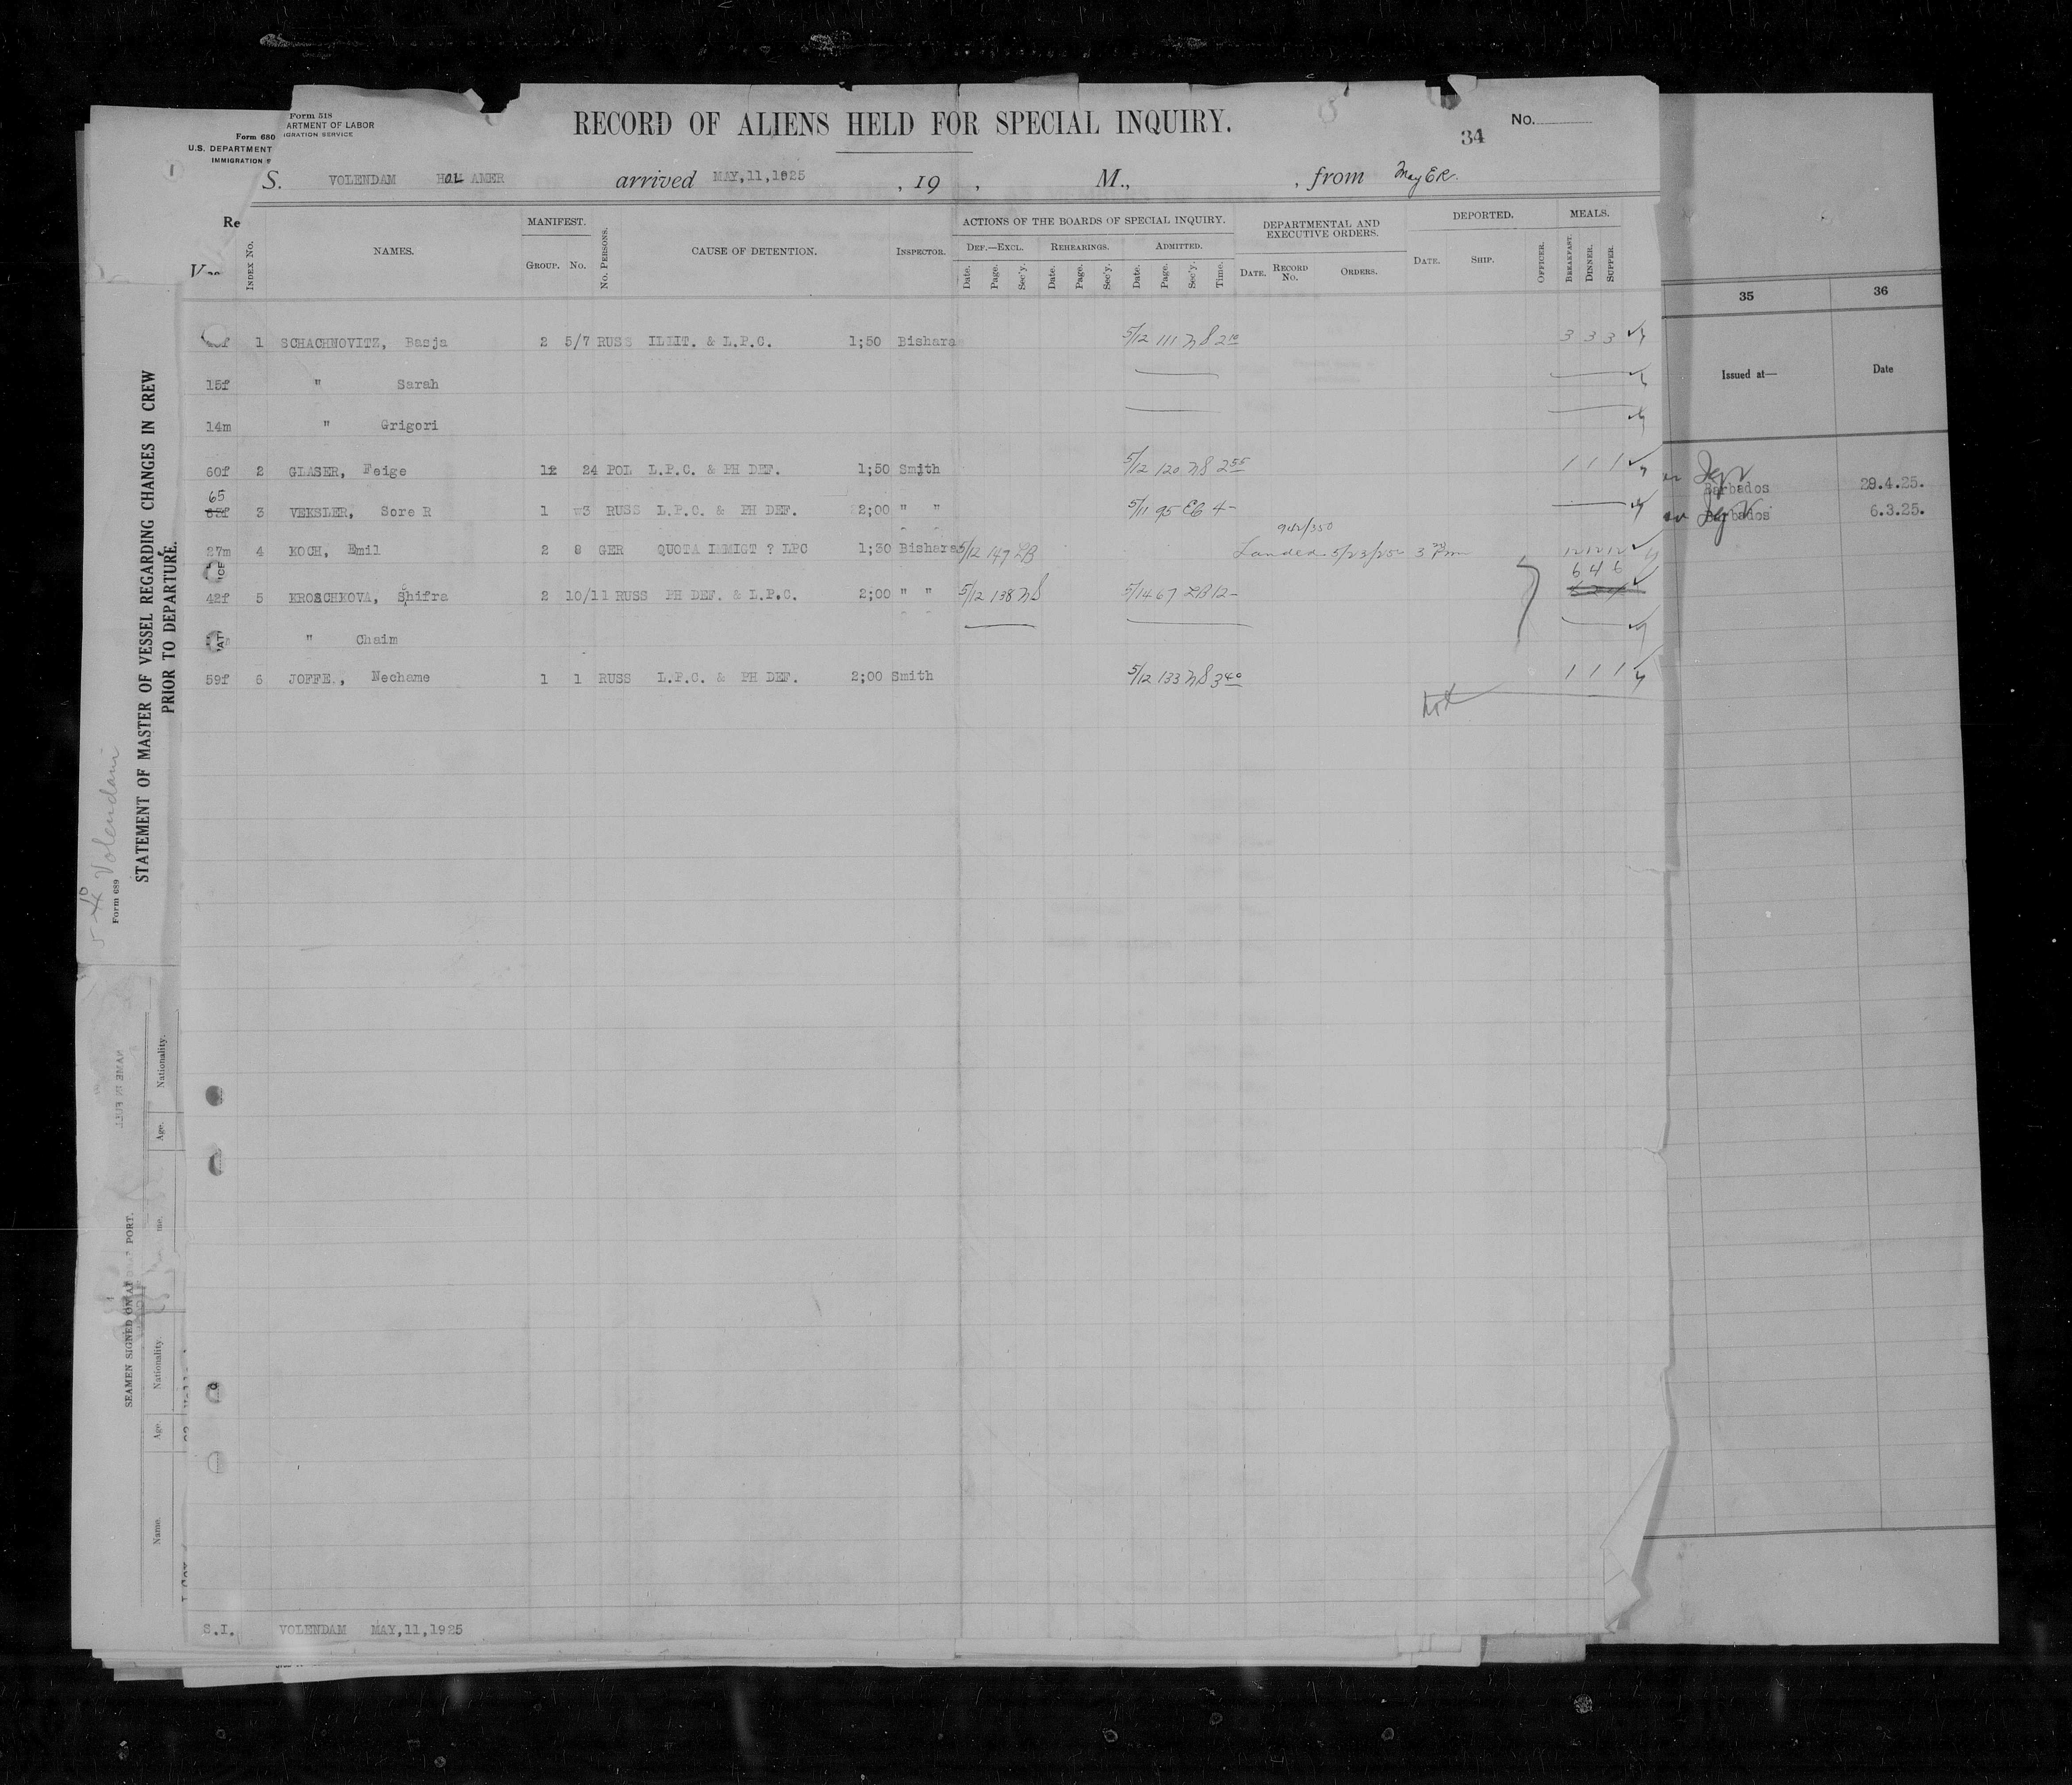 Form 518
ARTMENT OF LABOR
IGRATION SERVICE
Form 680
U.S. DEPARTMENT
IMMIGRATION S
RECORD OF ALIENS HELD FOR SPECIAL INQUIRY.
No.
34
S. VOLENDAM HOL AMER arrived MAY,11,1925 , 19 , M., , from
Re
INDEX No. NAMES. MANIFEST. GROUP. No. No. PERSONS. CAUSE OF DETENTION. INSPECTOR. ACTIONS OF THE BOARDS OF SPECIAL INQUIRY. DEF.—EXCL. Date. Page. Sec'y. REHEARINGS. Date. Page. Sec'y. ADMITTED. Date. Page. Sec'y. Time. DEPARTMENTAL AND EXECUTIVE ORDERS. DATE. RECORD No. ORDERS. DEPORTED. DATE. SHIP. OFFICER. MEALS. BREAKFAST. DINNER. SUPPER.
1 SCHACHNOVITZ, Basja 2 5/7 RUSS ILLIT. & L.P.C. 1;50 Bishara 5/12 111 NS 2 10 3 3 3
15f " Sarah
14m " Grigori
60f 2 GLASER, Feige 12 24 POL L.P.C. & PH DEF. 1;50 Smith 5/12 120 NS 2 55 1 1 1
65
3 VEKSLER, Sore R 1 3 RUSS L.P.C. & PH DEF. 2;00 " " 5/11 95 EG 4-
27m 4 KOCH, Emil 2 8 GER QUOTA IMMIGT ? LPC 1;30 Bishara 5/12 147 LB Landed 5/23/25 3 PM 12 12 12
6 4 6
42f 5 KROSCHKOVA, Shifra 2 10/11 RUSS PH DEF. & L.P.C. 2;00 " " 5/12 138 NS 5/14 67 LB 12-
" Chaim
59f 6 JOFFE, Nechame 1 1 RUSS L.P.C. & PH DEF. 2;00 Smith 5/12 133 NS 3 40 1 1 1
S.I. VOLENDAM MAY,11,1925
STATEMENT OF MASTER OF VESSEL REGARDING CHANGES IN CREW
PRIOR TO DEPARTURE.
Form 689
Volendam
NAME IN FULL
Nationality.
Age.
SEAMEN SIGNED ON AT PORT.
Nationality
Age.
Name.
35 36
Issued at— Date
Barbados 29.4.25.
Barbados 6.3.25.